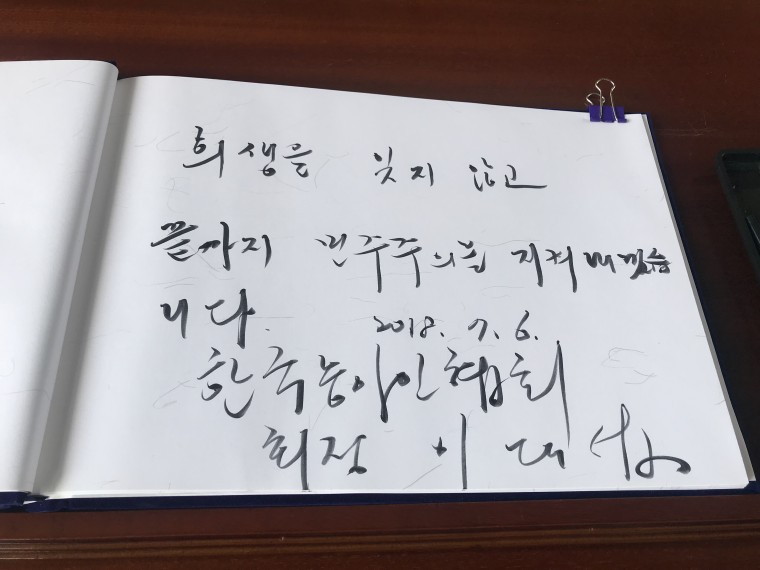 희생을 잊지 않고
끝까지 민주주의를 지켜내겠습
니다. 2018. 7. 6.
한국농아인협회
회장 이대섭